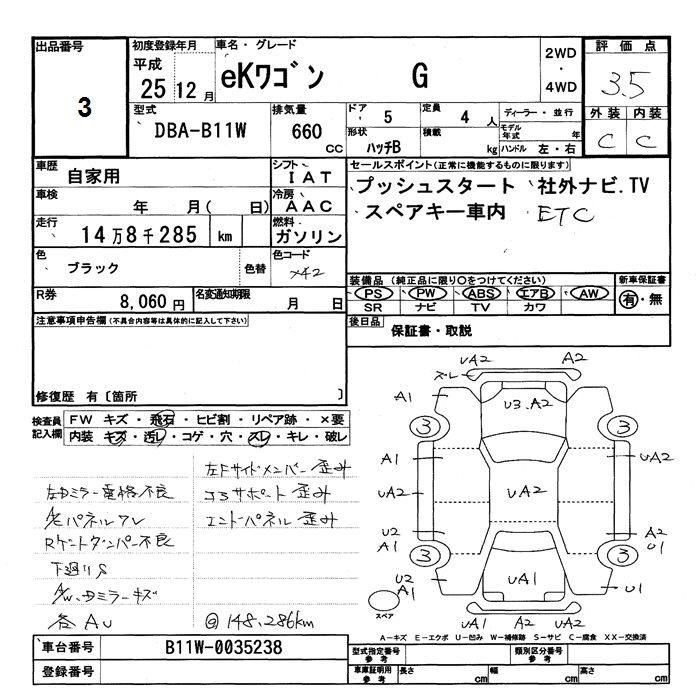 出品番号 初度登録年月 車名・グレード 2WD 評価点
3 平成 25 12月 eKワゴン G ・ 4WD 3.5
型式 排気量 ドア 定員 ディーラー・並行 外装 内装
DBA-B11W 660 CC 5 4人 モデル年式 年 C C
形状 積載 kg ハンドル 左・右
ハッチB
車歴 自家用 シフト IAT セールスポイント(正常に機能するものに限ります)
車検 年 月( 日) 冷房 AAC プッシュスタート 社外ナビ.TV
走行 14万8千285 km 燃料 ガソリン スペアキー車内 ETC
色 ブラック 色替 色コード X42
装備品(純正品に限り○をつけてください) 新車保証書
R券 8,060円 名変通知期限 月 日 PS PW ABS エアB AW 有・無
SR ナビ TV カワ
注意事項申告欄(不具合内容等は具体的に記入して下さい) 後日品 保証書・取説
修復歴 有〔箇所 〕
検査員記入欄 FW キズ・飛石・ヒビ割・リペア跡・×要
内装 キズ・汚レ・コゲ・穴・スレ・キレ・破レ
左Fサイドメンバー歪み
左Dミラー電格不良 コアサポート歪み
エンドパネル歪み
Rゲートダンパー不良
下廻りS
A/W、Dミラーキズ
各AU @148,286km
UA2 A2
ズレ
A1 U3.A2
3 3
A1 UA2
UA2 UA2 A2
U2 A2
A1 U1
3 3
U2 UA1 U1
A1
スペア UA1 A2 UA2
A-キズ E-エクボ U-凹み W-補修跡 S-サビ C-腐食 XX-交換済
車台番号 B11W-0035238 型式指定番号 参考 類別区分番号 参考
登録番号 車庫証明用 参考 長さ cm 幅 cm 高さ cm